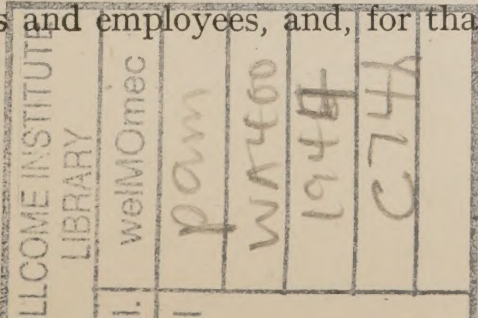 s and employees, and, for tha
LLCOME INSTITUTE
LIBRARY
welMOmec
pam
WA400
1944
C74
l.